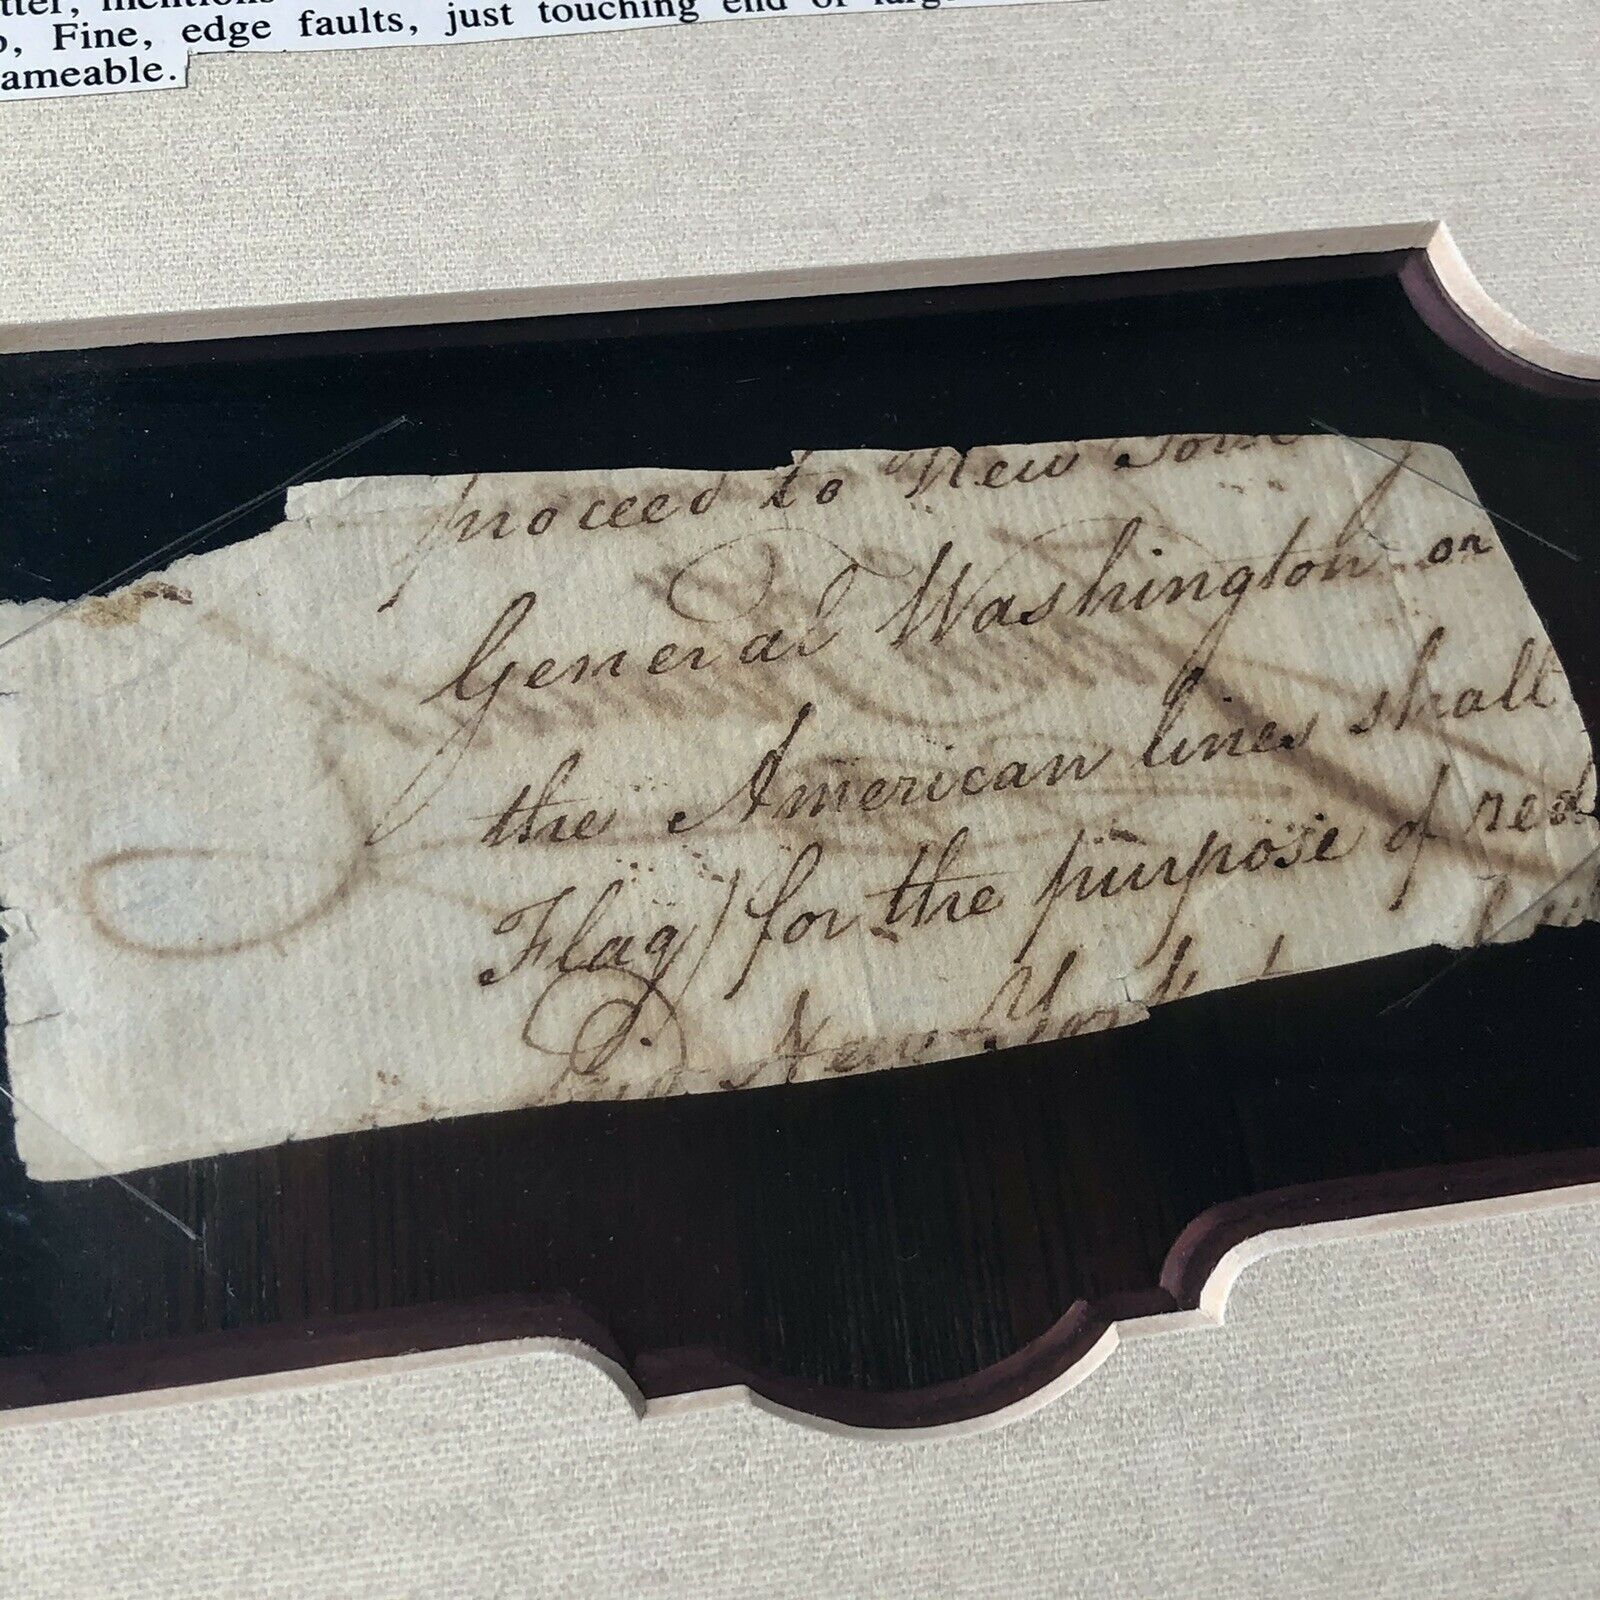 mentions
Fine, edge faults, just touching end of
ameable.
proceed to New York
General Washington or
the American lines shall
Flag) for the purpose of red
New-York